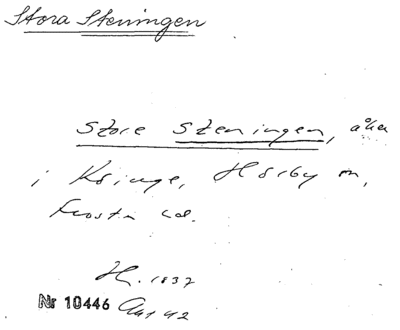 Stora Steningen
Store Steningen, åker
i Kringe, Hörby sn,
Frosta hd.
H. 1837
Nr 10446 Akt 42